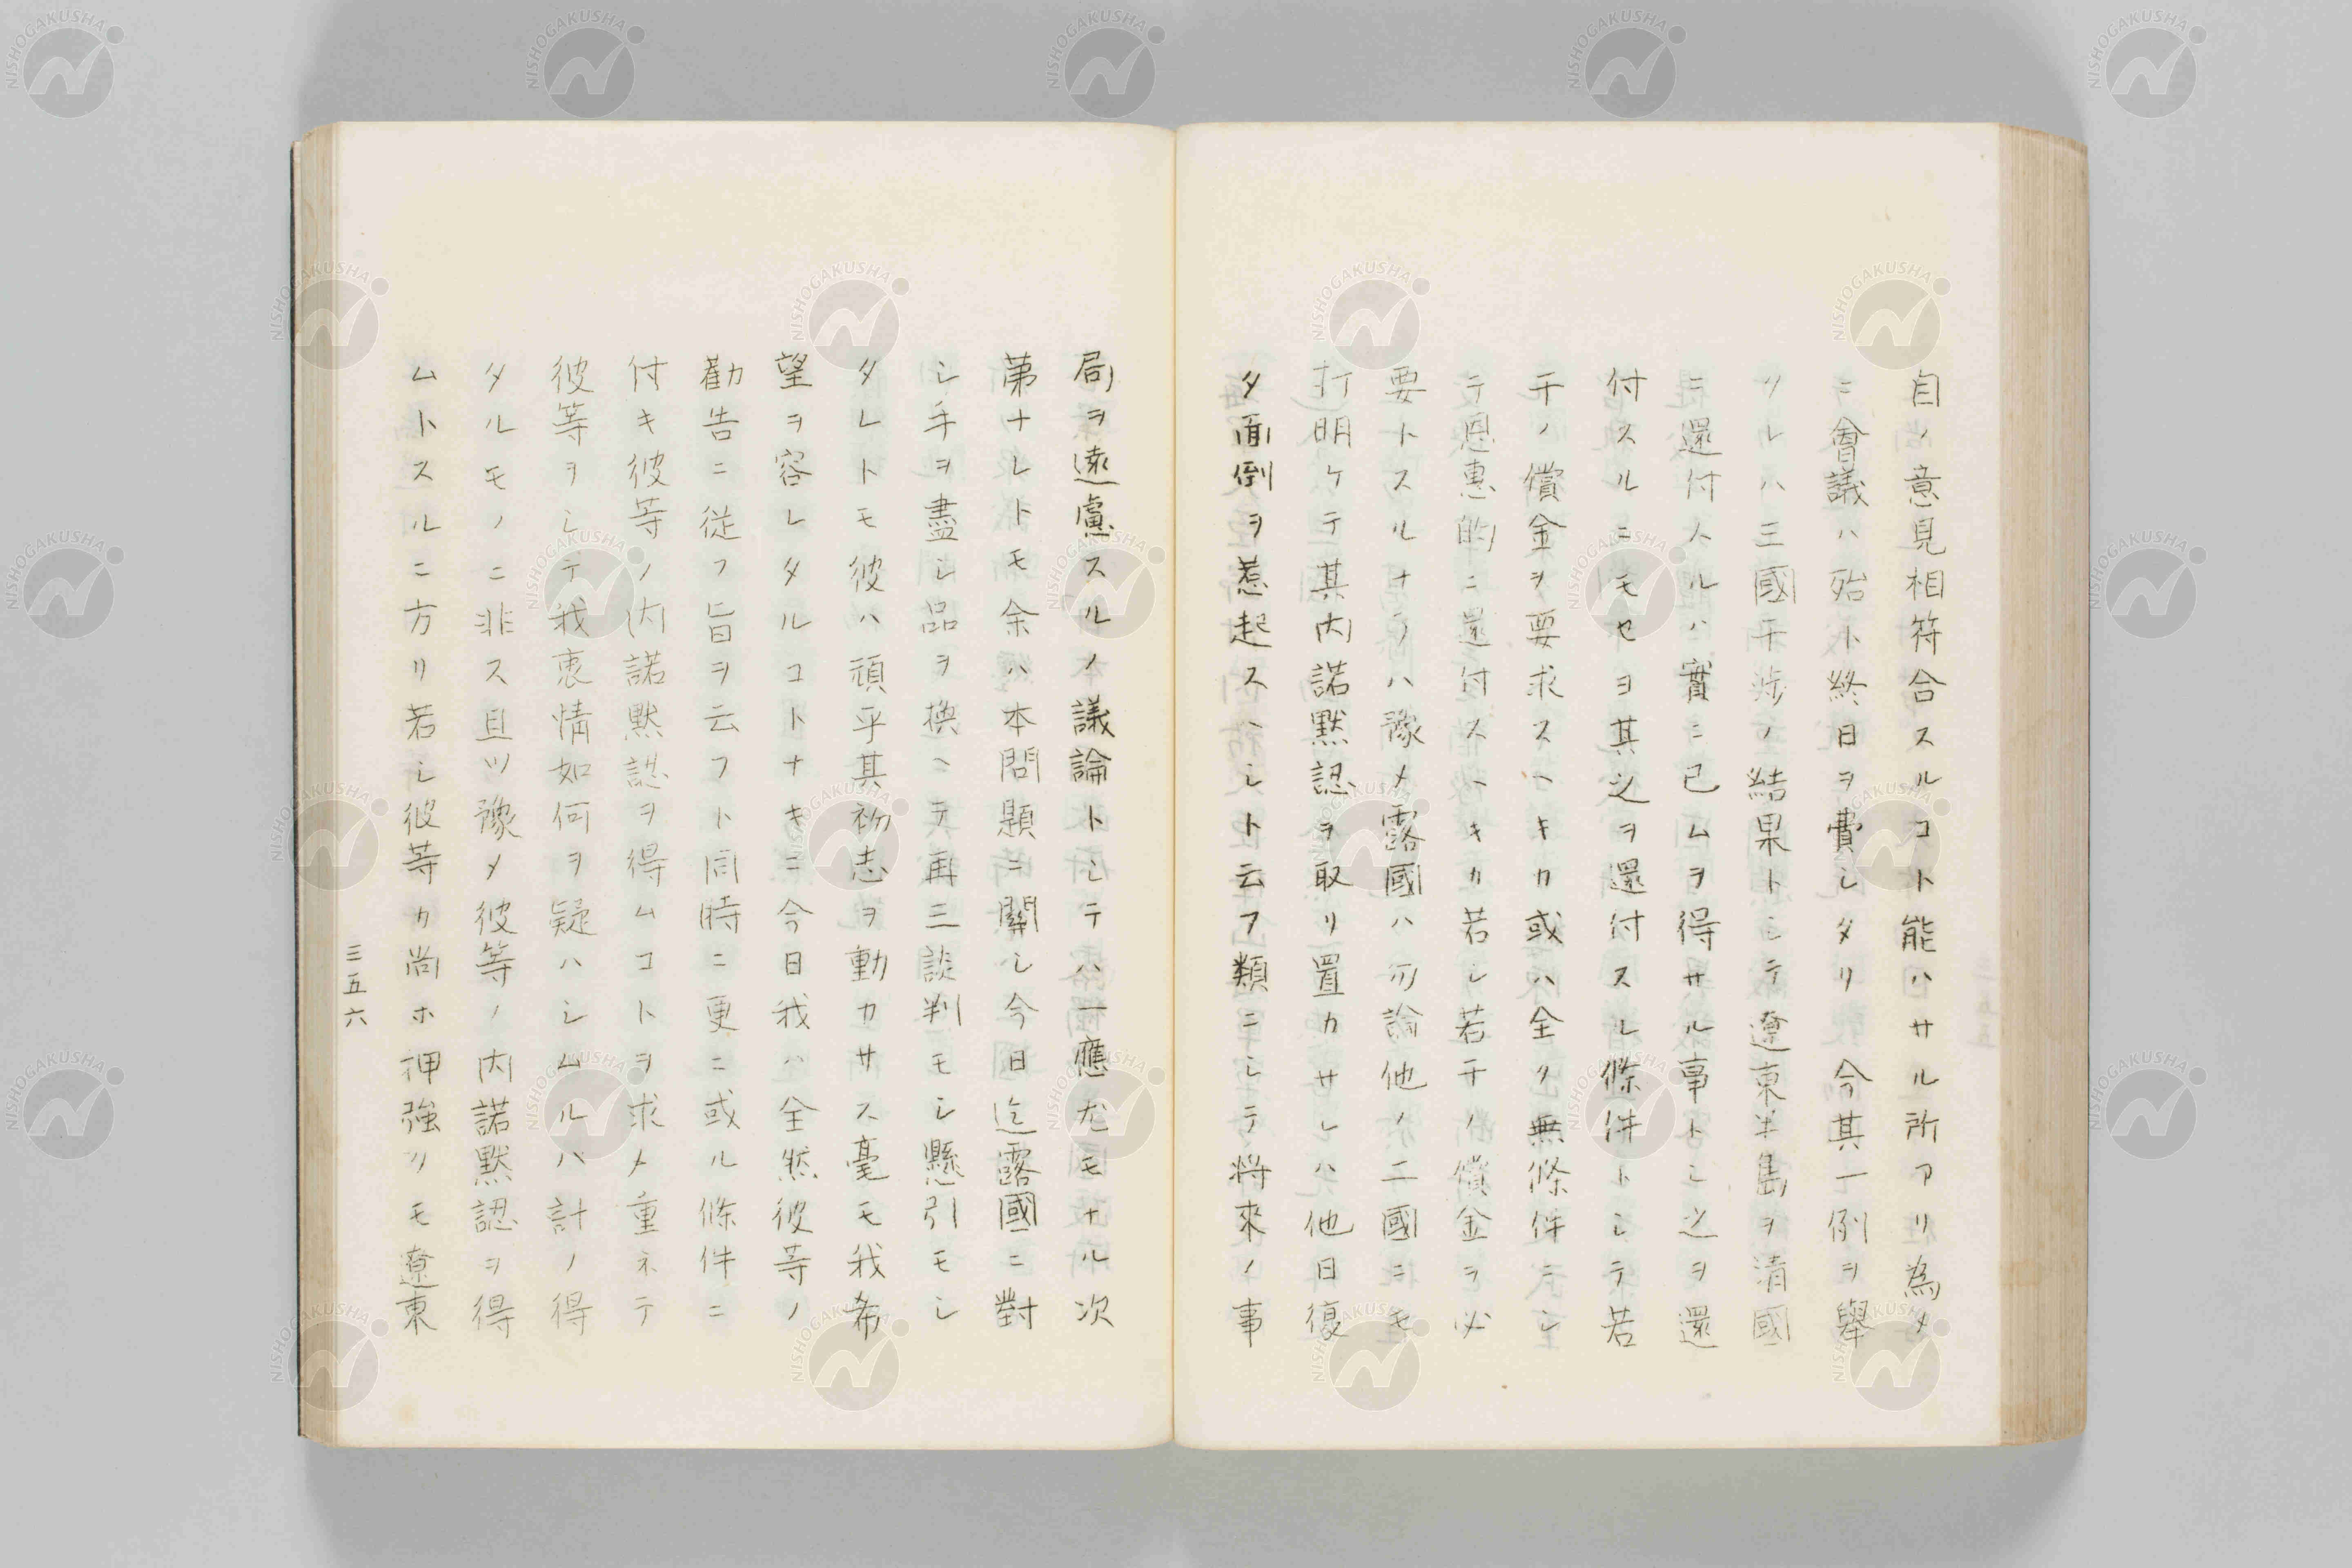 自ノ意見相符合スルコト能ハサル所アリ為タ
ニ會議ハ殆ト終日ヲ費シタリ 今其一例ヲ舉
クレハ三國干渉ノ結果トシテ遼東半島ヲ清國
ニ還付スルハ實ニ已ムヲ得サル事トシ之ヲ還
付スルニモセヨ其之ヲ還付スル條件トシテ若
干ノ償金ヲ要求スヘキカ或ハ全ク無條件ニシ
テ恩惠的ニ還付スヘキカ若シ若干ノ償金ヲ必
要トスルナラハ豫メ露國ハ勿論他ノ二國ニモ
打明ケテ其内諾黙認ヲ取リ置カサレハ他日復
タ面倒ヲ惹起スヘシト云フ類ニシテ将來ノ事
局ヲ遠慮スルノ議論トシテハ一應尤モナル次
第ナレトモ余ハ本問題ニ關シ今日迄露國ニ對
シ手ヲ盡シ品ヲ換ヘテ再三談判モシ懸引モシ
タレトモ彼ハ頑乎其初志ヲ動カサス毫モ我希
望ヲ容レタルコトナキニ今日我ハ全然彼等ノ
勸告ニ従フ旨ヲ云フト同時ニ更ニ或ル條件ニ
付キ彼等ノ内諾黙認ヲ得ムコトヲ求メ重ネテ
彼等ヲシテ我衷情如何ヲ疑ハシムルハ計ノ得
タルモノニ非ス且ツ豫メ彼等ノ内諾黙認ヲ得
ムトスルニ方リ若シ彼等カ尚ホ押強リモ遼東
三五六
NISHOGAKUSHA